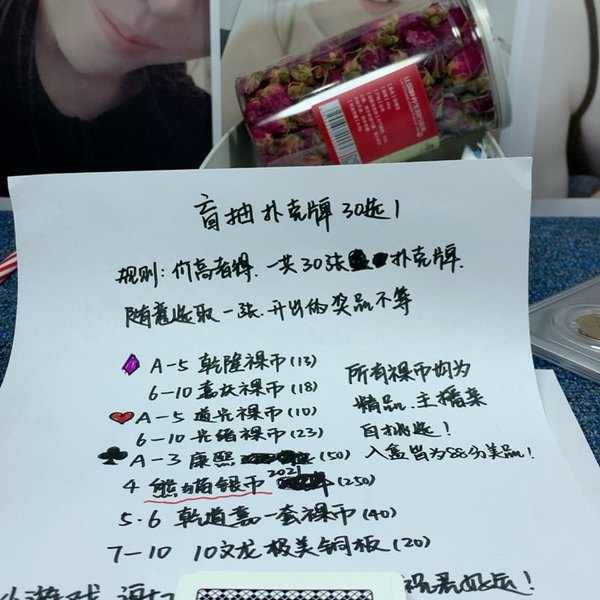 盲抽扑克牌30选1
规则:价高者得.一共30张扑克牌.
随意选取一张.开出的奖品不等
A-5 乾隆裸币(13)
6-10 嘉庆裸币(18)
A-5 道光裸币(10)
6-10 光绪裸币(23)
A-3 康熙(50)
4 熊猫银币2021(250)
5.6 乾道嘉一套裸币(40)
7-10 10文龙极美铜板(20)
所有裸币均为
精品.主播亲
自挑选!
入盒皆为88分美品!
游戏
祝君好运!